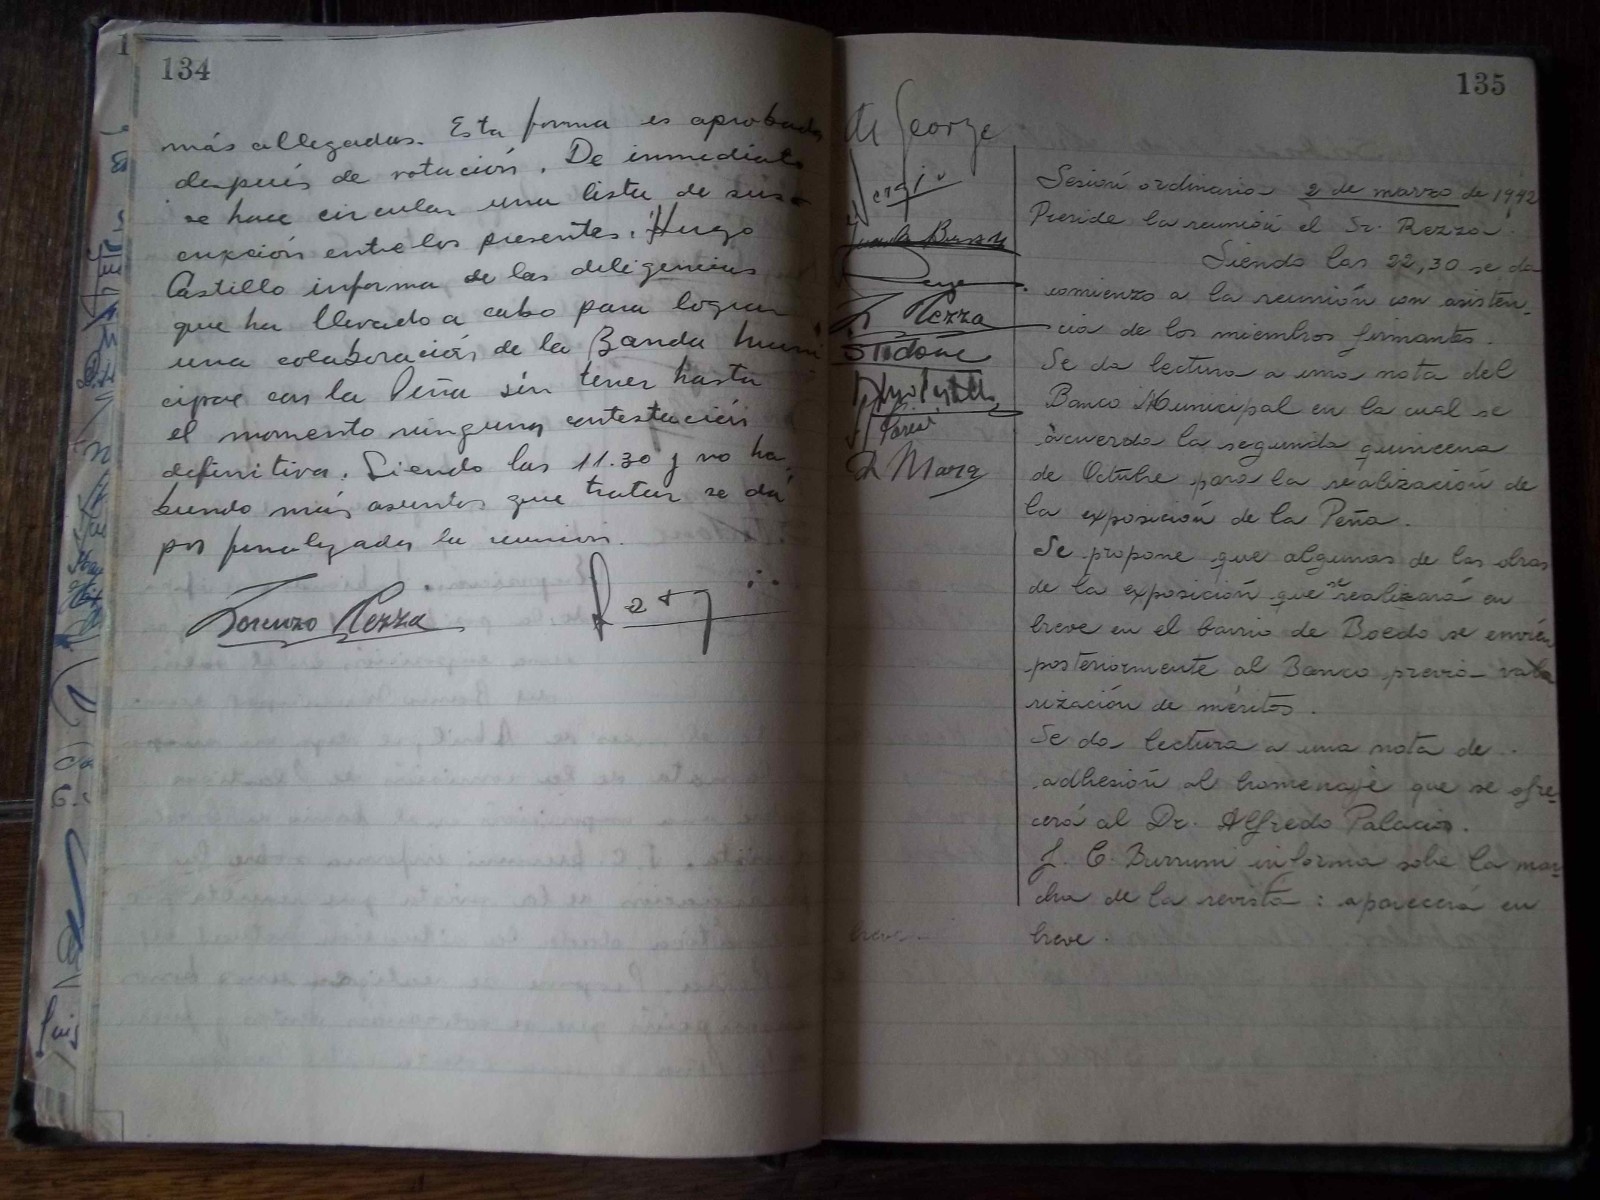 134
más allegadas. Esta forma es aprobada
después de votación. De inmediato
se hace circular una lista de sus-
cripción entre los presentes. Hugo
Castillo informa de las diligencias
que ha llevado a cabo para lograr
una colaboración de la Banda Muni
cipal con la Peña sin tener hasta
el momento ninguna contestación
definitiva. Siendo las 11.30 y no ha-
biendo más asuntos que tratar se dá
por finalizada la reunión.
Lorenzo Rezza
135
George
Sergi
Rezza
STEdone
R Mara
Sesión ordinaria 2 de marzo de 1942
Preside la reunión el Sr. Rezza.
Siendo las 22,30 se da
comienzo a la reunión con asisten-
cia de los miembros firmantes.
Se da lectura a una nota del
Banco Municipal en la cual se
acuerda la segunda quincena
de Octubre para la realización de
la exposición de la Peña.
Se propone que algunas de las obras
de la exposición que se realizará en
breve en el barrio de Boedo se envíen
posteriormente al Banco previa valo
rización de méritos.
Se da lectura a una nota de
adhesión al homenaje que se ofre-
cerá al Dr. Alfredo Palacios.
J. C. Burruni informa sobe la mar-
cha de la revista: aparecerá en
breve.